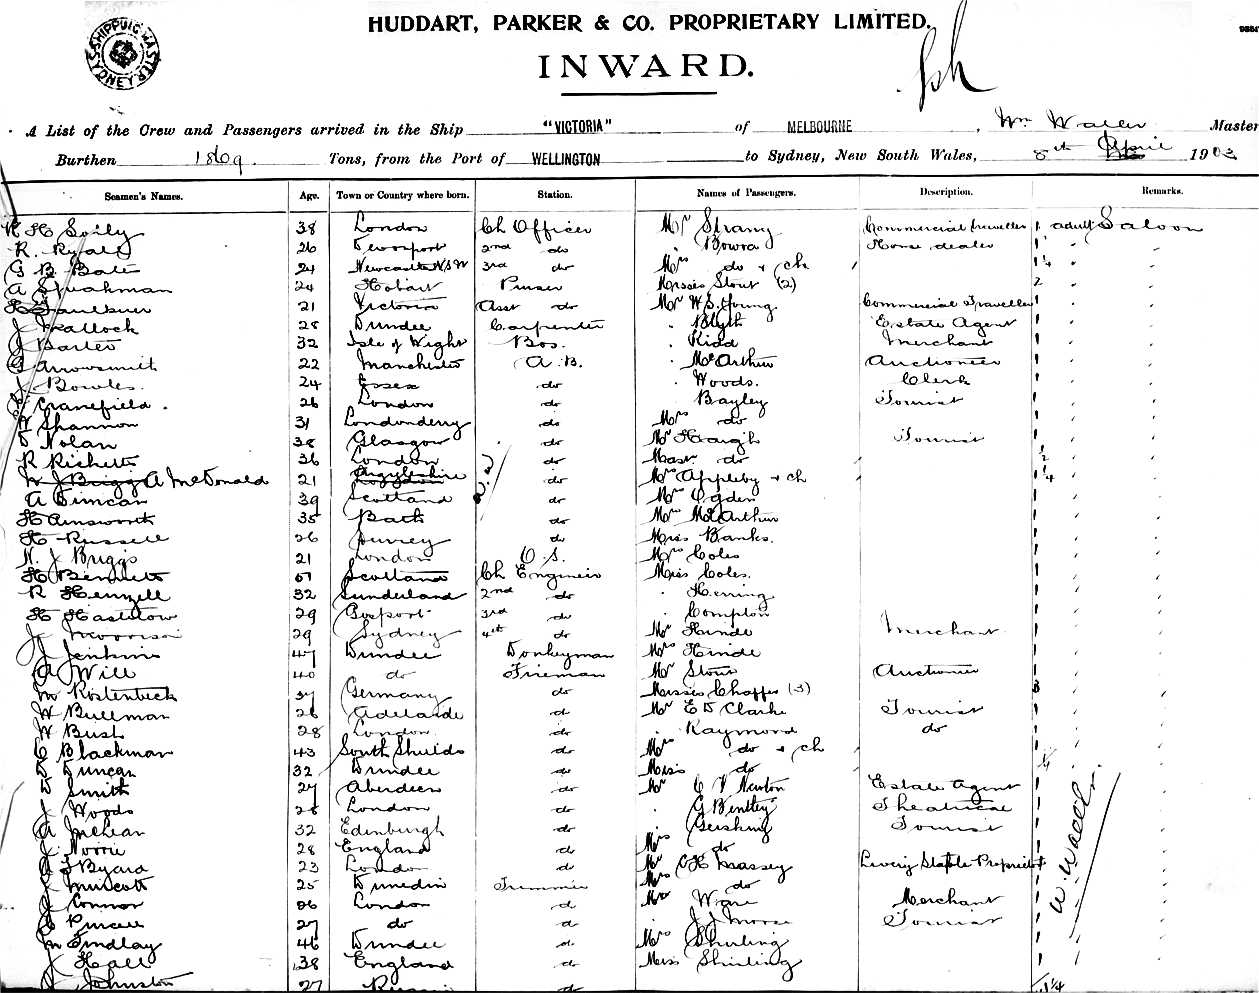 HUDDART, PARKER & CO. PROPRIETARY LIMITED.
INWARD.
SHIPPING MASTER SYDNEY
A List of the Crew and Passengers arrived in the Ship "VICTORIA" of MELBOURNE, Wm Waller Master
Burthen 1869. Tons, from the Port of WELLINGTON to Sydney, New South Wales, 8th April 190
Seamen's Names. Age. Town or Country where born. Station. Names of Passengers. Description. Remarks.
38 London Ch Officer Mr Commercial traveller 1 adult Saloon
R. 26 Devonport 2nd do Bowra Horse dealer 1
G B Bates 24 Newcastle NSW 3rd do Mrs do + ch 1 1/4
A Speakman 24 Hobart Purser Misses Stout (2) 2
H Faulkner 21 Victoria Asst do Mr W S Young Commercial Traveller 1
J 28 Dundee Carpenter Blyth Estate Agent 1
J Baxter 32 Isle of Wight Bos. Kidd Merchant 1
G Arrowsmith 22 Manchester A.B. McArthur Auctioneer 1
J Bowles. 24 Essex do Woods. Clerk 1
Cranefield. 26 London do Bayley Tourist 1
W Shannon 31 Londonderry do Mrs do 1
D Nolan 38 Glasgow do Mr Haugh Tourist 1
R Ricketts 36 London do Mast. do 1/2
W J Briggs A McDonald 21 Argyleshire do Mrs Appleby + ch 1 1/4
A Duncan 39 Scotland do Mrs Ogden 1
H Ainsworth 35 Bath do Mrs McArthur 1
H Russell 26 do Miss Banks. 1
N. J Briggs 21 London O.S. Mrs Coles 1
H Bennetts Scotland Ch Engineer Miss Coles. 1
R Henzell 32 Sunderland 2nd do Heming 1
H 29 Gosport 3rd do Compton 1
J Morrison 29 Sydney 4th do Mr Hinde Merchant 1
J Jenkins 47 Dundee Donkeyman Mrs Hinde 1
A Will 40 do Fireman Mr Stout Auctioneer 1
M Rostenbeck 37 Germany do Misses (3) 3
W Bullman 26 Adelaide do Mr E D Clarke Tourist 1
W Bush 28 London do Raymond do 1
C Blackman 43 South Shields do Mrs do + ch 1/4
D Duncan 32 Dundee do Miss do 1
D Smith 27 Aberdeen do Mr C V Newton Estate Agent 1
J Woods 28 London do G Bentley Theatrical 1
A McLean 32 Edinburgh do Gershing Tourist 1
J Norrie 28 England do Mrs do 1
Byard 23 London do Mr C H Massey Livery Stable Proprietor 1
J 25 Dunedin Trimmer Mrs do 1
J Connor 26 London do Mr Ware Merchant 1
Purcell 27 do do J J Morse Tourist 1
M Findlay 46 Dundee do Mrs Shirling 1
J Hall 38 England do Miss Shirling 1
J Johnston 27 Russia do
W. Waller